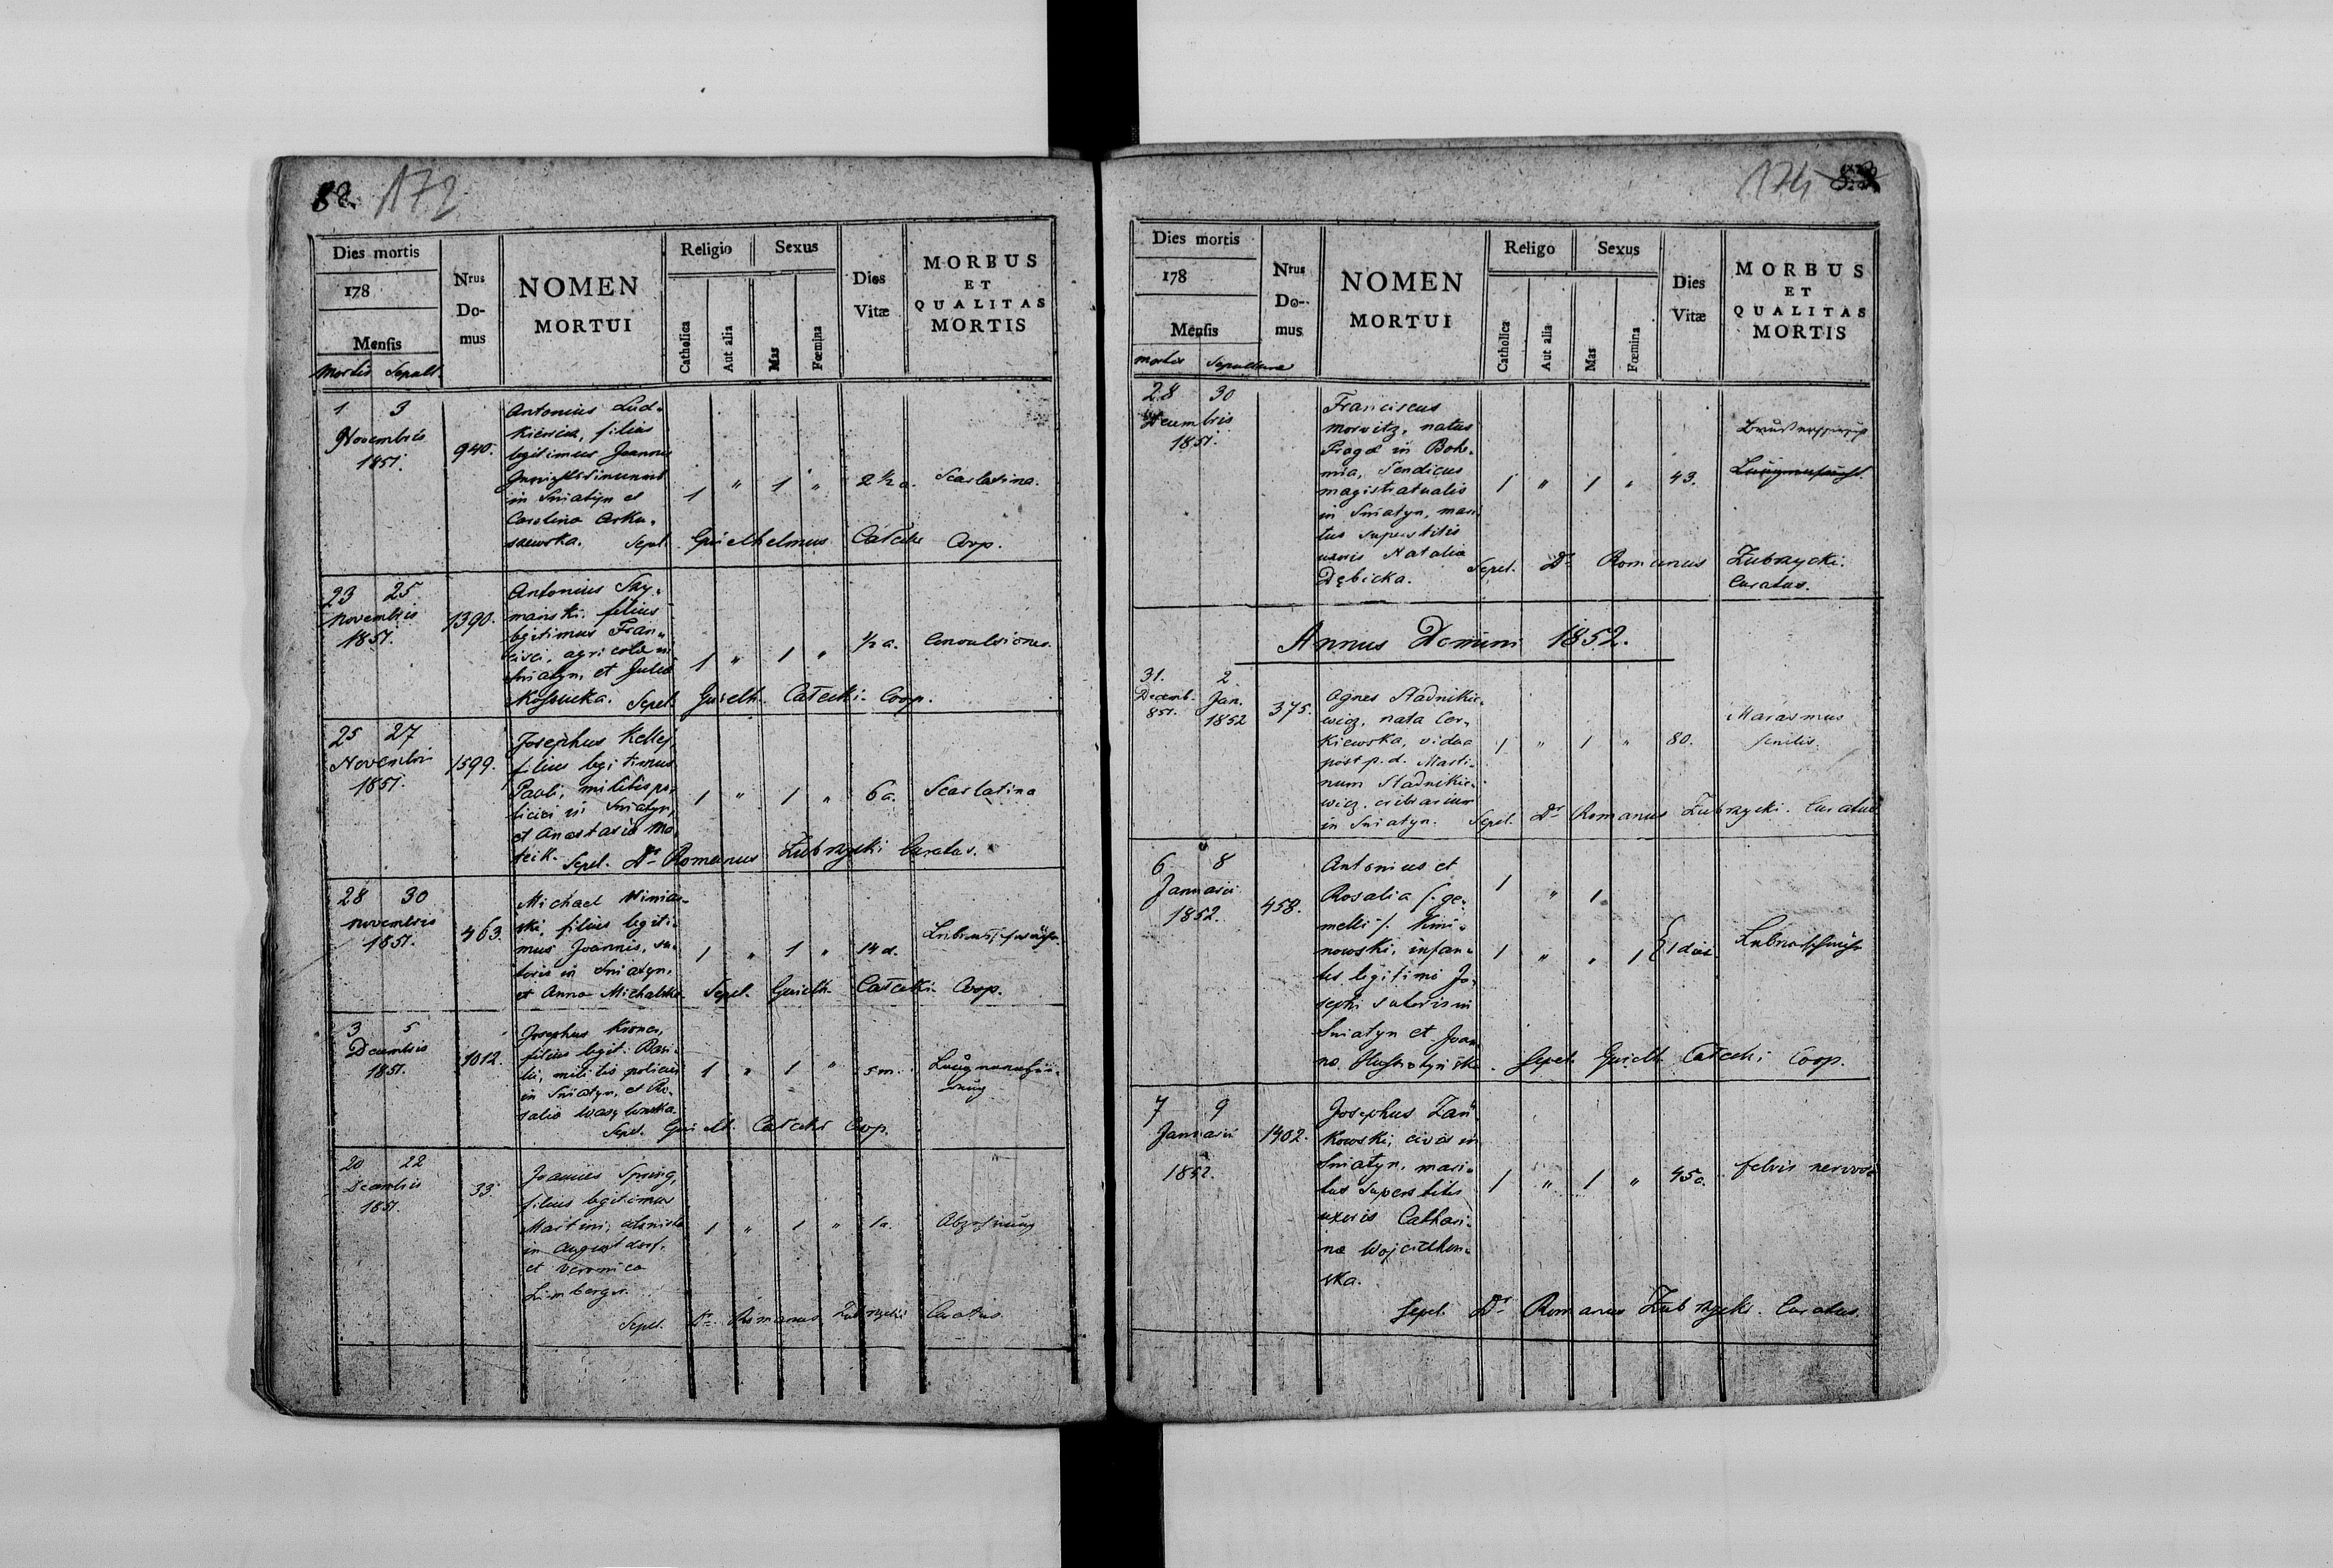 82. 172
Dies mortis
178
Mensis
Mortis Sepult.
Nrus Do-mus
NOMEN MORTUI
Religio
Catholica
Aut alia
Sexus
Mas
Fœmina
Dies Vitæ
MORBUS
ET
QUALITAS
MORTIS
1 3
Novembris
1851.
940.
Antonius Lud-
kiewicz, filius
legitimus Joannis
in Sniatyn et
Carolina Arku-
szewska.
1 " 1 " 2½ a. Scarlatina.
Sepel. Guielhelmus Catecki Coop.
23 25
Novembris
1851.
1390.
Antonius Szy-
manski. filius
legitimus Fran-
cisci, agricolæ in
Sniatyn, et Julia
1 " 1 " ½ a. Convulsiones.
Sepel. Guielh. Catecki Coop.
25 27
Novembris
1851.
1599.
Josephus Keller,
filius legitimus
Pauli, militis po-
liciei in Sniatyn,
et Anastasia Ma-
teik.
1 " 1 " 6 a. Scarlatina
Sepel. Dr Romanus Zubrzycki Curatus.
28 30
Novembris
1851.
463.
Michael Winiar-
ski, filius legiti-
mus Joannis, su-
toris in Sniatyn,
et Anna Michalska
1 " 1 " 14 d.
Sepel. Guielh. Catecki Coop.
3 5
Decembris
1851.
1012.
Josephus Kroner,
filius legit. Basi-
lii, militis policiei
in Sniatyn, et Ro-
salia
1 " 1 " 5 m.
Sepel. Guielh. Catecki Coop.
20 22
Decembris
1851.
33.
Joannes Spring,
filius legitimus
Martini, colonistæ
in Augustdorf,
et Veronica
Limberger.
1 " 1 " 1 a. Abzehrung
Sepel. Dr Romanus Zubrzycki Curatus.
174
Dies mortis
178
Mensis
mortis Sepulturæ
Nrus Do-mus
NOMEN MORTUI
Religo
Catholica
Aut alia
Sexus
Mas
Fœmina
Dies Vitæ
MORBUS
ET
QUALITAS
MORTIS
28 30
Decembris
1851.
Franciscus
Morwitz, natus
Pragæ in Bohe-
mia, Sendicus
magistratualis
in Sniatyn, mari-
tus superstitis
uxoris Natalia
Dębicka.
1 " 1 " 43.
Sepel. Dr Romanus Zubrzycki.
Curatus.
Annus Domini 1852.
31. 2
Decemb. Jan.
851. 1852
375.
Agnes Stadnikie-
wicz, nata Cer-
kiewska, vidua
post p. d. Marti-
num Stadnikie-
wicz, cribrarium
in Sniatyn.
1 " 1 " 80. Marasmus
senilis.
Sepel. Dr Romanus Zubrzycki. Curatus
6 8
Januarii
1852.
458.
Antonius et
Rosalia /. ge-
melli /. Kimi-
nowski, infan-
tes legitimi Jo-
sephi sutoris in
Sniatyn et Joan-
na
1 " 1.
1 " " 1 } 1 diei
Sepel. Guielh. Catecki Coop.
7 9
Januarii
1852.
1402.
Josephus Zań-
kowski, civis in
Sniatyn, mari-
tus superstitis
uxoris Cathari-
næ Wojciechow-
ska.
1 " 1 " 45 a. febris nervosa
Sepel. Dr Romanus Zubrzycki. Curatus.